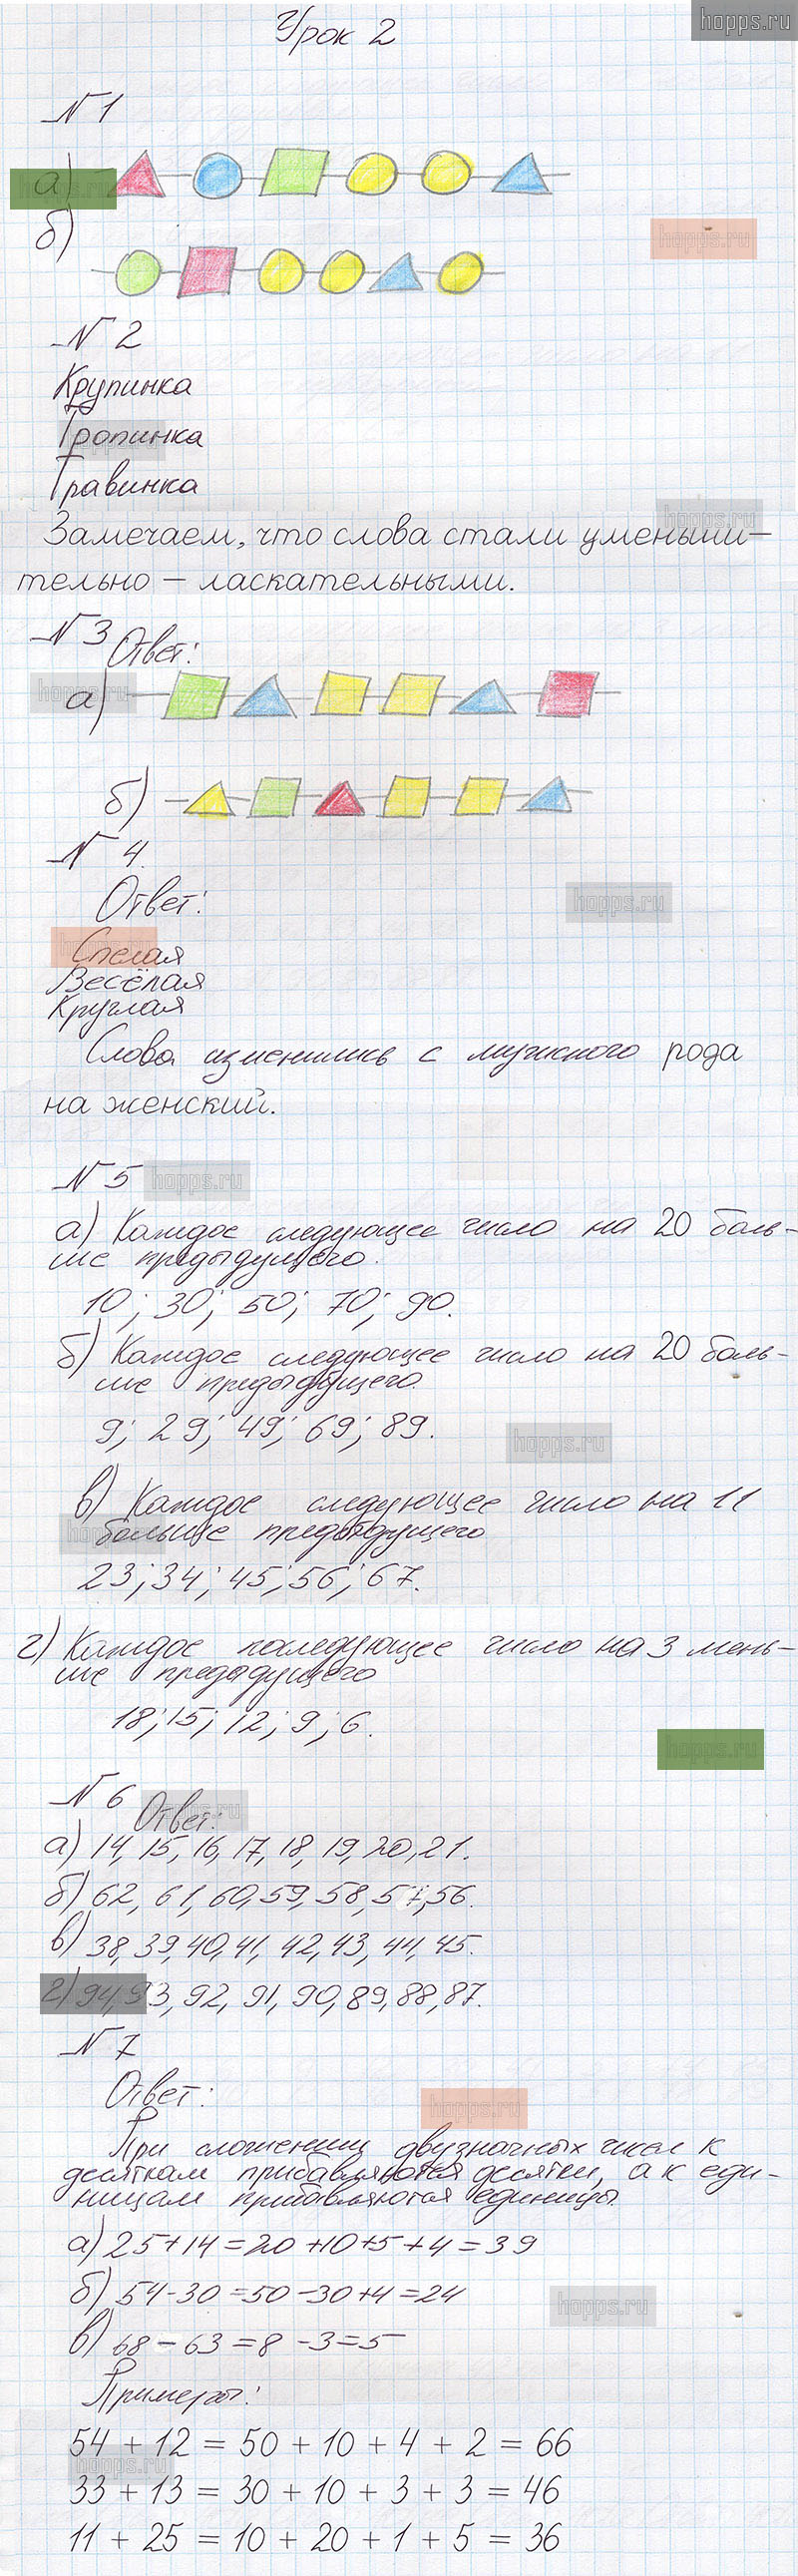 hopps.ru
Урок 2
№ 1
а)
hopps.ru
б)
hopps.ru
№ 2
Крупинка
Тропинка
hopps.ru
Травинка
hopps.ru
Замечаем, что слова стали уменьши-
тельно - ласкательными.
№ 3 Ответ:
hopps.ru
а)
б)
№ 4.
Ответ:
hopps.ru
Спелая
Весёлая
Круглая
Слова изменились с мужского рода
на женский.
№ 5 hopps.ru
а) Каждое следующее число на 20 боль-
ше предыдущего.
10; 30; 50; 70; 90.
б) Каждое следующее число на 20 боль-
ше предыдущего.
9; 29; 49; 69; 89.
hopps.ru
в) Каждое следующее число на 11
больше предыдущего
23; 34; 45; 56; 67.
г) Каждое последующее число на 3 мень-
ше предыдущего
18; 15; 12; 9; 6.
hopps.ru
№ 6 Ответ:
а) 14, 15, 16, 17, 18, 19, 20, 21.
б) 62, 61, 60, 59, 58, 57, 56.
в) 38, 39, 40, 41, 42, 43, 44, 45.
г) 94, 93, 92, 91, 90, 89, 88, 87.
№ 7
Ответ:
hopps.ru
При сложении двузначных чисел к
десяткам прибавляются десятки, а к еди-
ницам прибавляются единицы.
а) 25+14=20+10+5+4=39
б) 54-30=50-30+4=24
hopps.ru
в) 68-63=8-3=5
Примеры:
54 + 12 = 50 + 10 + 4 + 2 = 66
hopps.ru
33 + 13 = 30 + 10 + 3 + 3 = 46
11 + 25 = 10 + 20 + 1 + 5 = 36